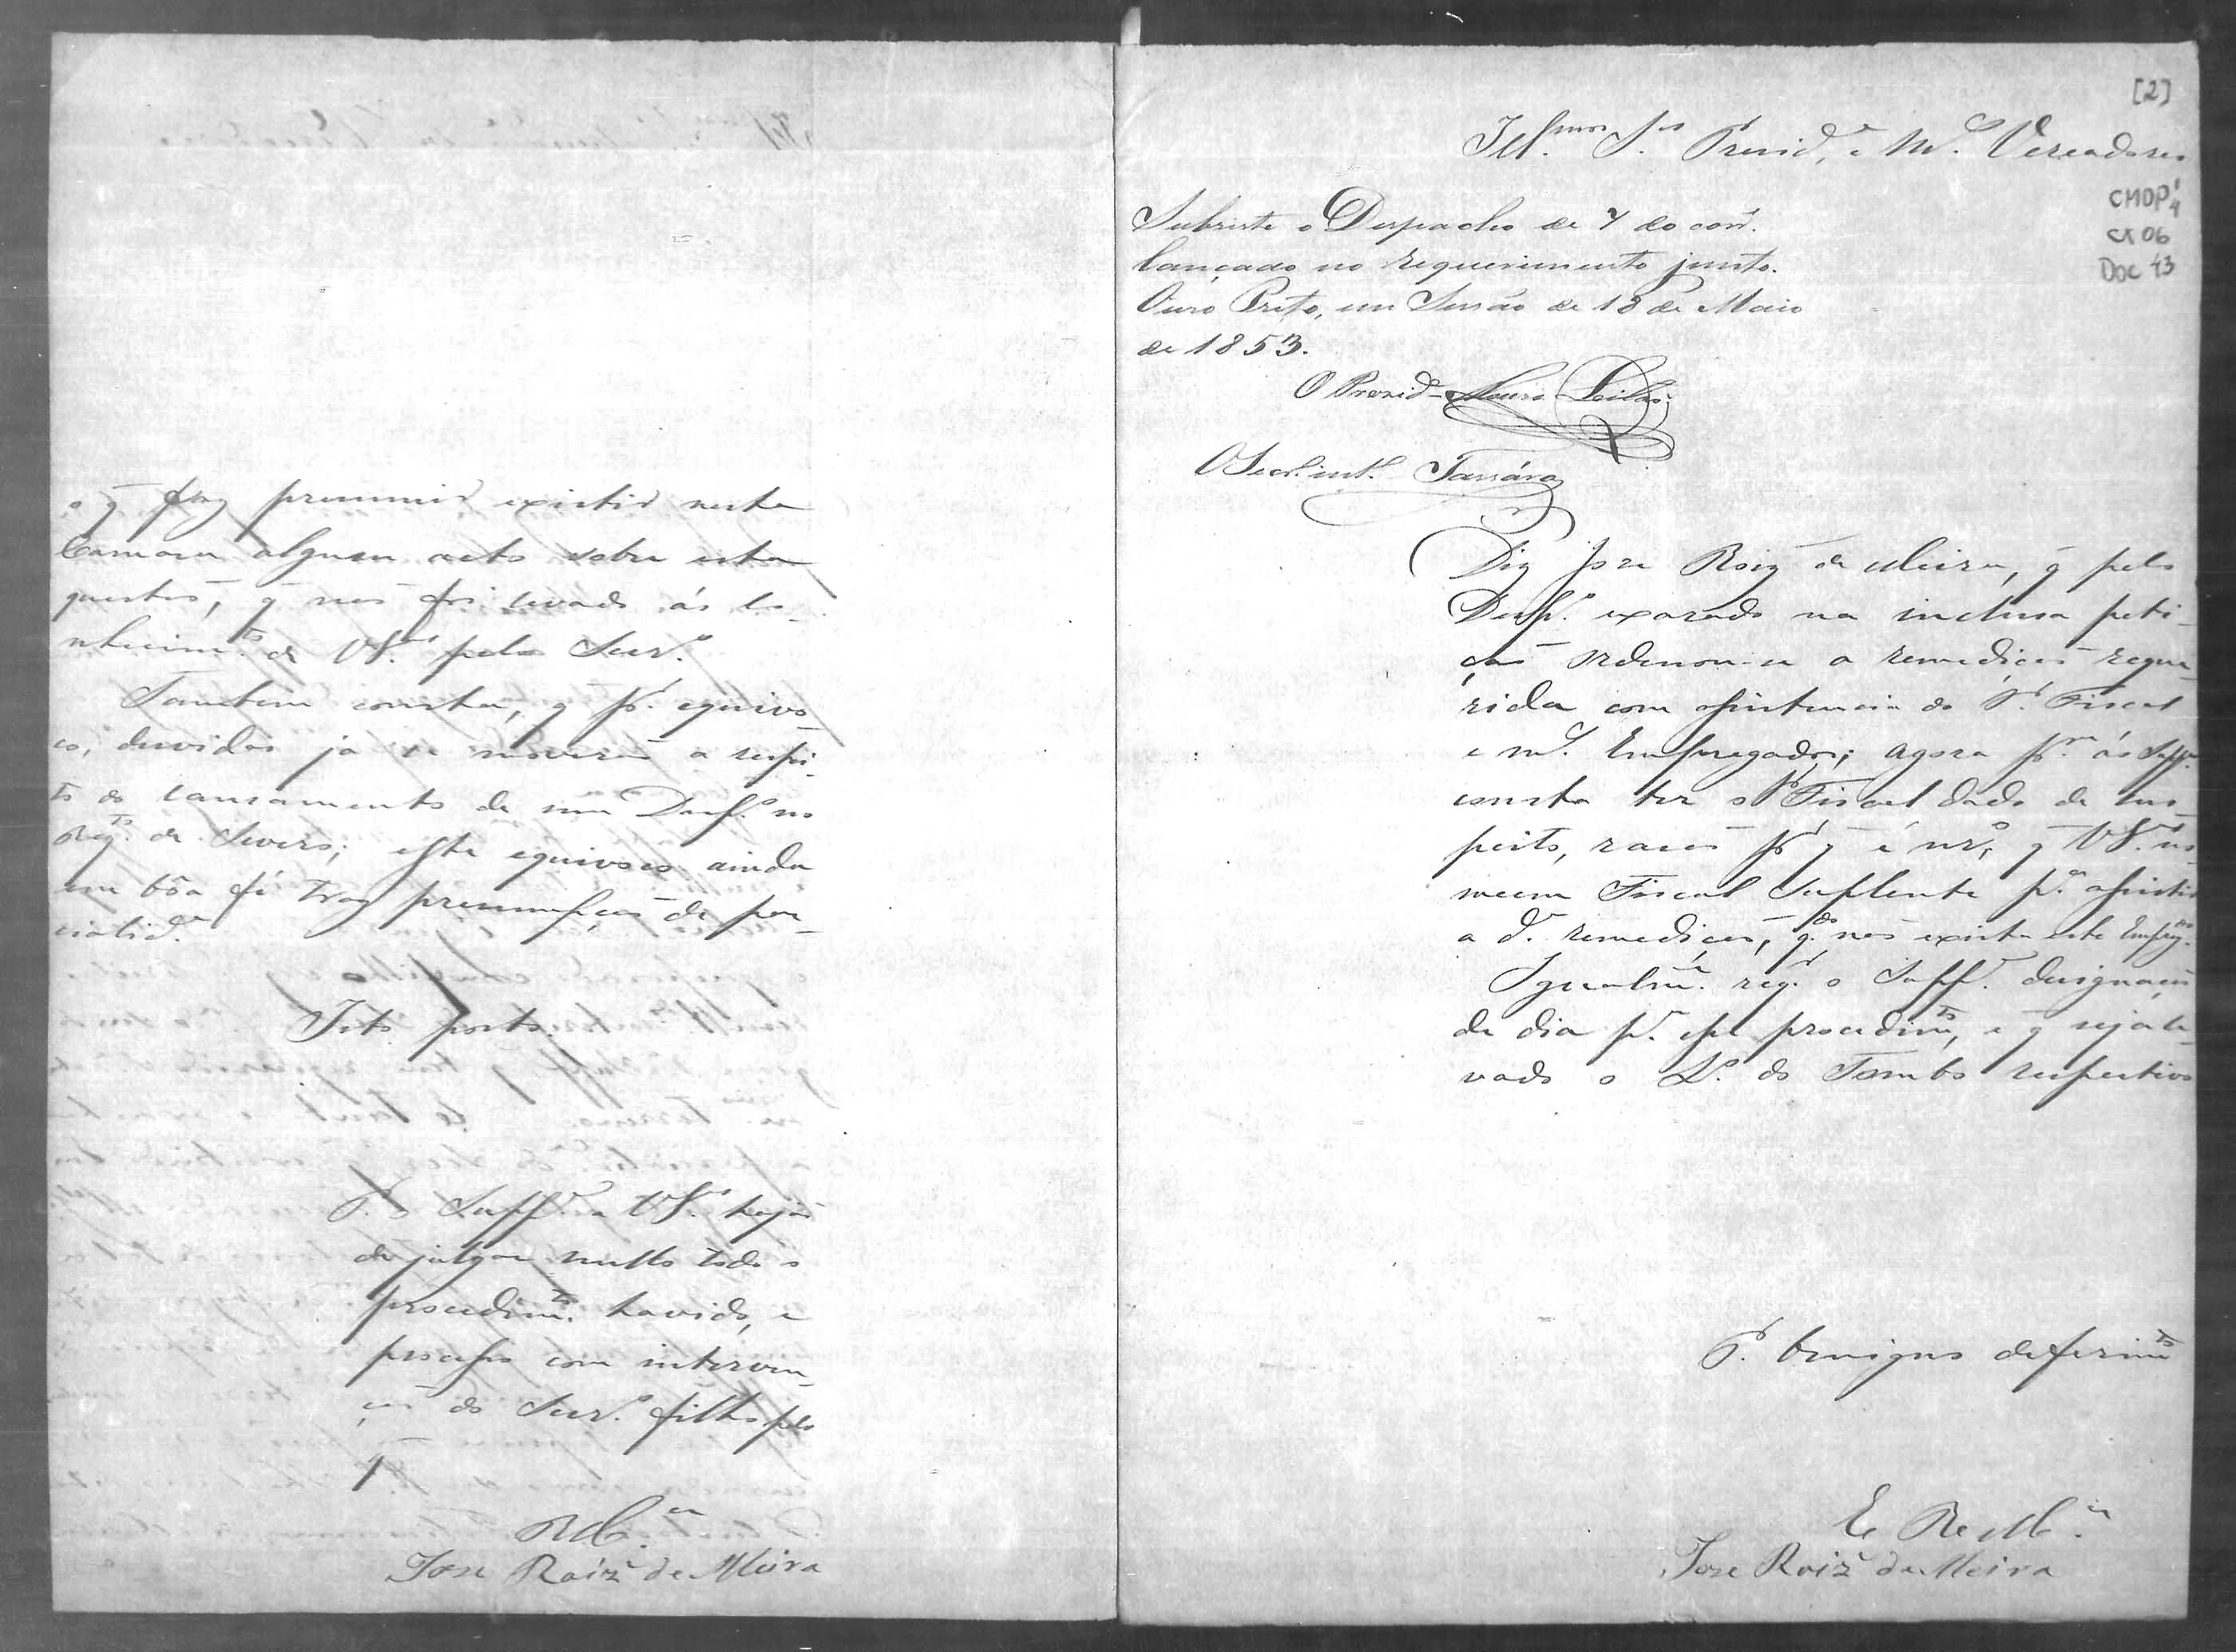 o q̃ faz presumir existir nesta
Camara algum acto sobre esta
questão, q̃ não foi levado ás Co-
nhecim.to de VS.as pelo Secr.o
Tambem consta, q̃ p.r equivo-
co, duvidas ja se moverão a respei-
to do lansamento de um Desp.o no
Reg.to de Livros; esse equivoco ainda
em bôa fé traz presumpção de par-
cialid.e
Isto posto.
P. o Supp.e a VS.as hajão
de julgar nullo todo o
procedim.to havido, e
processo com interven-
ção do Secr.o filho pelo
q̃
R M.ce
Jose Roiz de Meira
[2]
Ill.mos S.res Presid.e, e M.s Vereadores
CMOP
CX 06
DOC 43
Subsiste o Despacho de 7 do corr.
lançado no requerimento junto.
Ouro Preto, em Sessão de 18 de Maio
de 1853.
O Presid.
O Secr. int.o Tassára
Diz Jose Roiz de Meira, q̃ pelo
Desp.o exarado na inclusa peti-
ção ordenou-se a remedição reque-
rida com assistencia do S.r Fiscal
e m.s Empregados; agora p.rm ao Supp.e
consta ter o S.r Fiscal dado de sus-
peito, razão p.r q̃ é nr.o, q̃ VS.as no-
meem Fiscal Suplente p.a assistir
a d.a remedição, q.do não exista este Empreg.do
Igualm.e req.r o Supp.e designação
de dia p.a esse procedim.to, e q̃ seja le-
vado o L.o do Tombo respectivo
P. benigno deferim.to
E R M.ce
Jose Roiz de Meira